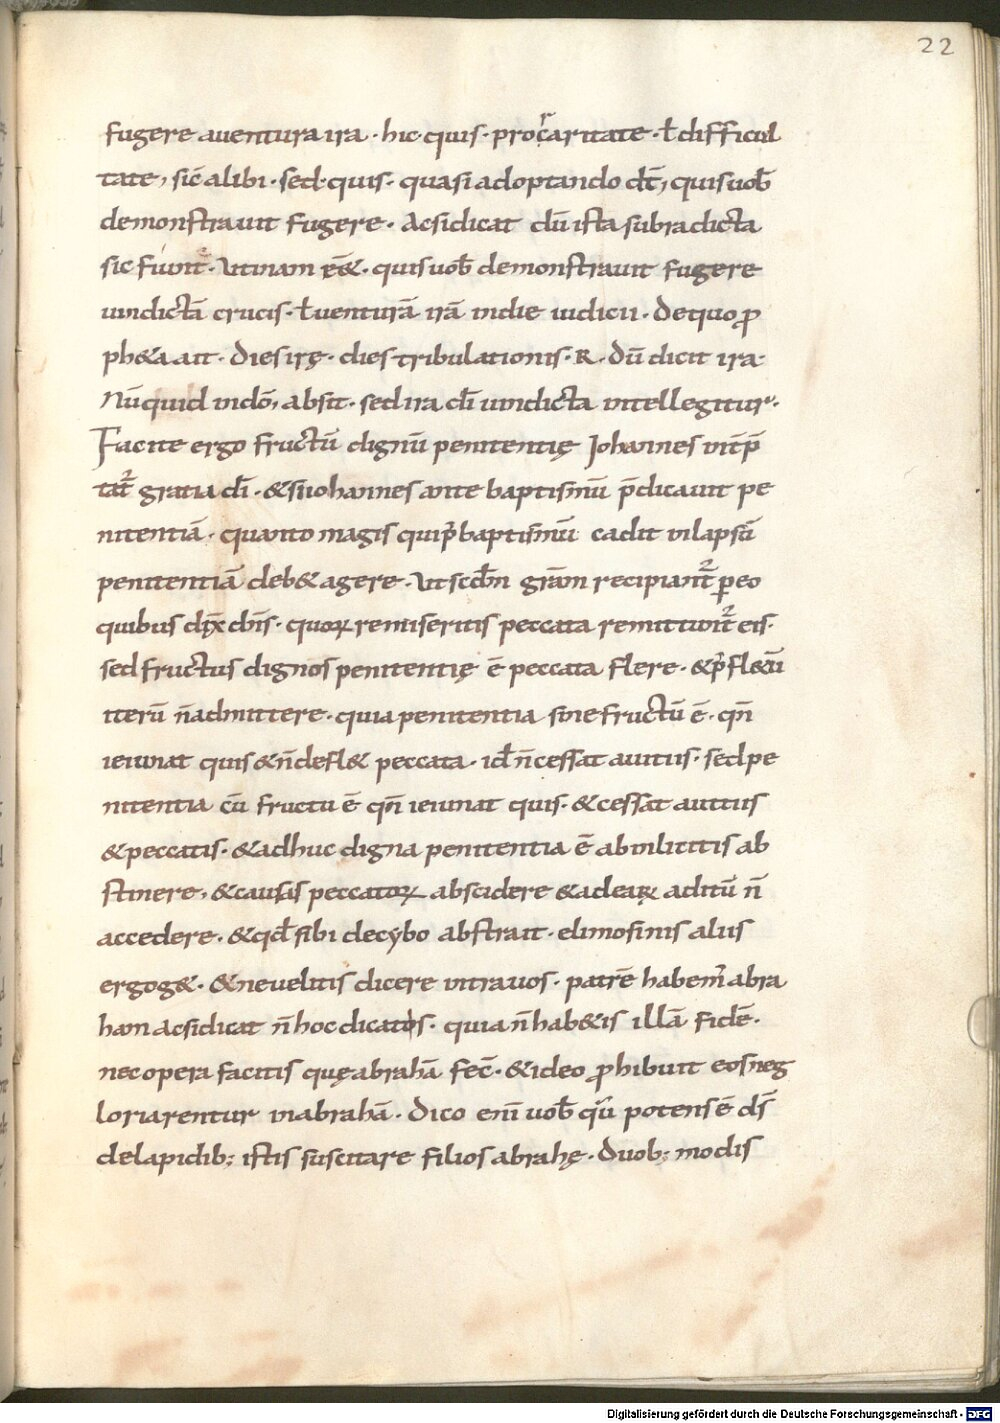 22
fugere auentura ira · hic · quis · pro rãaritate · ł difficul
tate, sic̄ alibi · sed · quis · quasi adoptando dc̄t, quis uob̄
demonstrauit fugere · Acsidicat dū ista subradicta
sic fiunt̄ · Utinam · quis uob̄ demonstrauit fugere
uindictā crucis · ł uenturā irā indie iudicii · De quo ꝓ
ph&a ait · Dies irę · dies tribulationis · R · Dū dicit ira ·
Nūquid indō, absit · sed ira dī uindicta intellegitur ·
Facite ergo fructū dignū penitentię Johannes int̄p̄
tat̄ gratia dī · & si iohannes ante baptismū p̄dicauit pe
nitentiā · quanto magis qui p̄ baptismū cadit in lapsū
penitentiā deb& agere · Ut scd̄m grām recipiant̄ ꝑ eo
quibus dix̄ dn̄s · quoꝝ remiseritis peccata remittunt̄ eis ·
sed fructus dignos penitentię ē peccata flere · & p̄ fl&ū
iterū n̄ admittere · quia penitentia sine fructū ē · qn̄
ieiunat quis & n̄ defl& peccata · id̄ n̄ cessat auitiis · sed pe
nitentia cū fructu ē qn̄ ieiunat quis · & cessat auitiis
& peccatis · & adhuc digna penitentia ē ab inlicitis ab
stinere, & causas peccatoꝝ abscidere & ad eaꝝ aditū n̄
accedere · & qd̄ sibi de cybo abstrait · elimosinis aliis
ergog& · & ne uelitis dicere intra uos · patrē habem̄ abra
ham Acsidicat n̄ hoc dicatis · quia n̄ hab&is illā fidē ·
nec opera facitis quę abrahā fec̄ · & ideo ꝓhibuit eos neg
loriarentur in abrahā · Dico enī uob̄ qm̄ potens ē ds̄
de lapidib; istis suscitare filios abrahę · Duob; modis
Digitalisierung gefördert durch die Deutsche Forschungsgemeinschaft - DFG